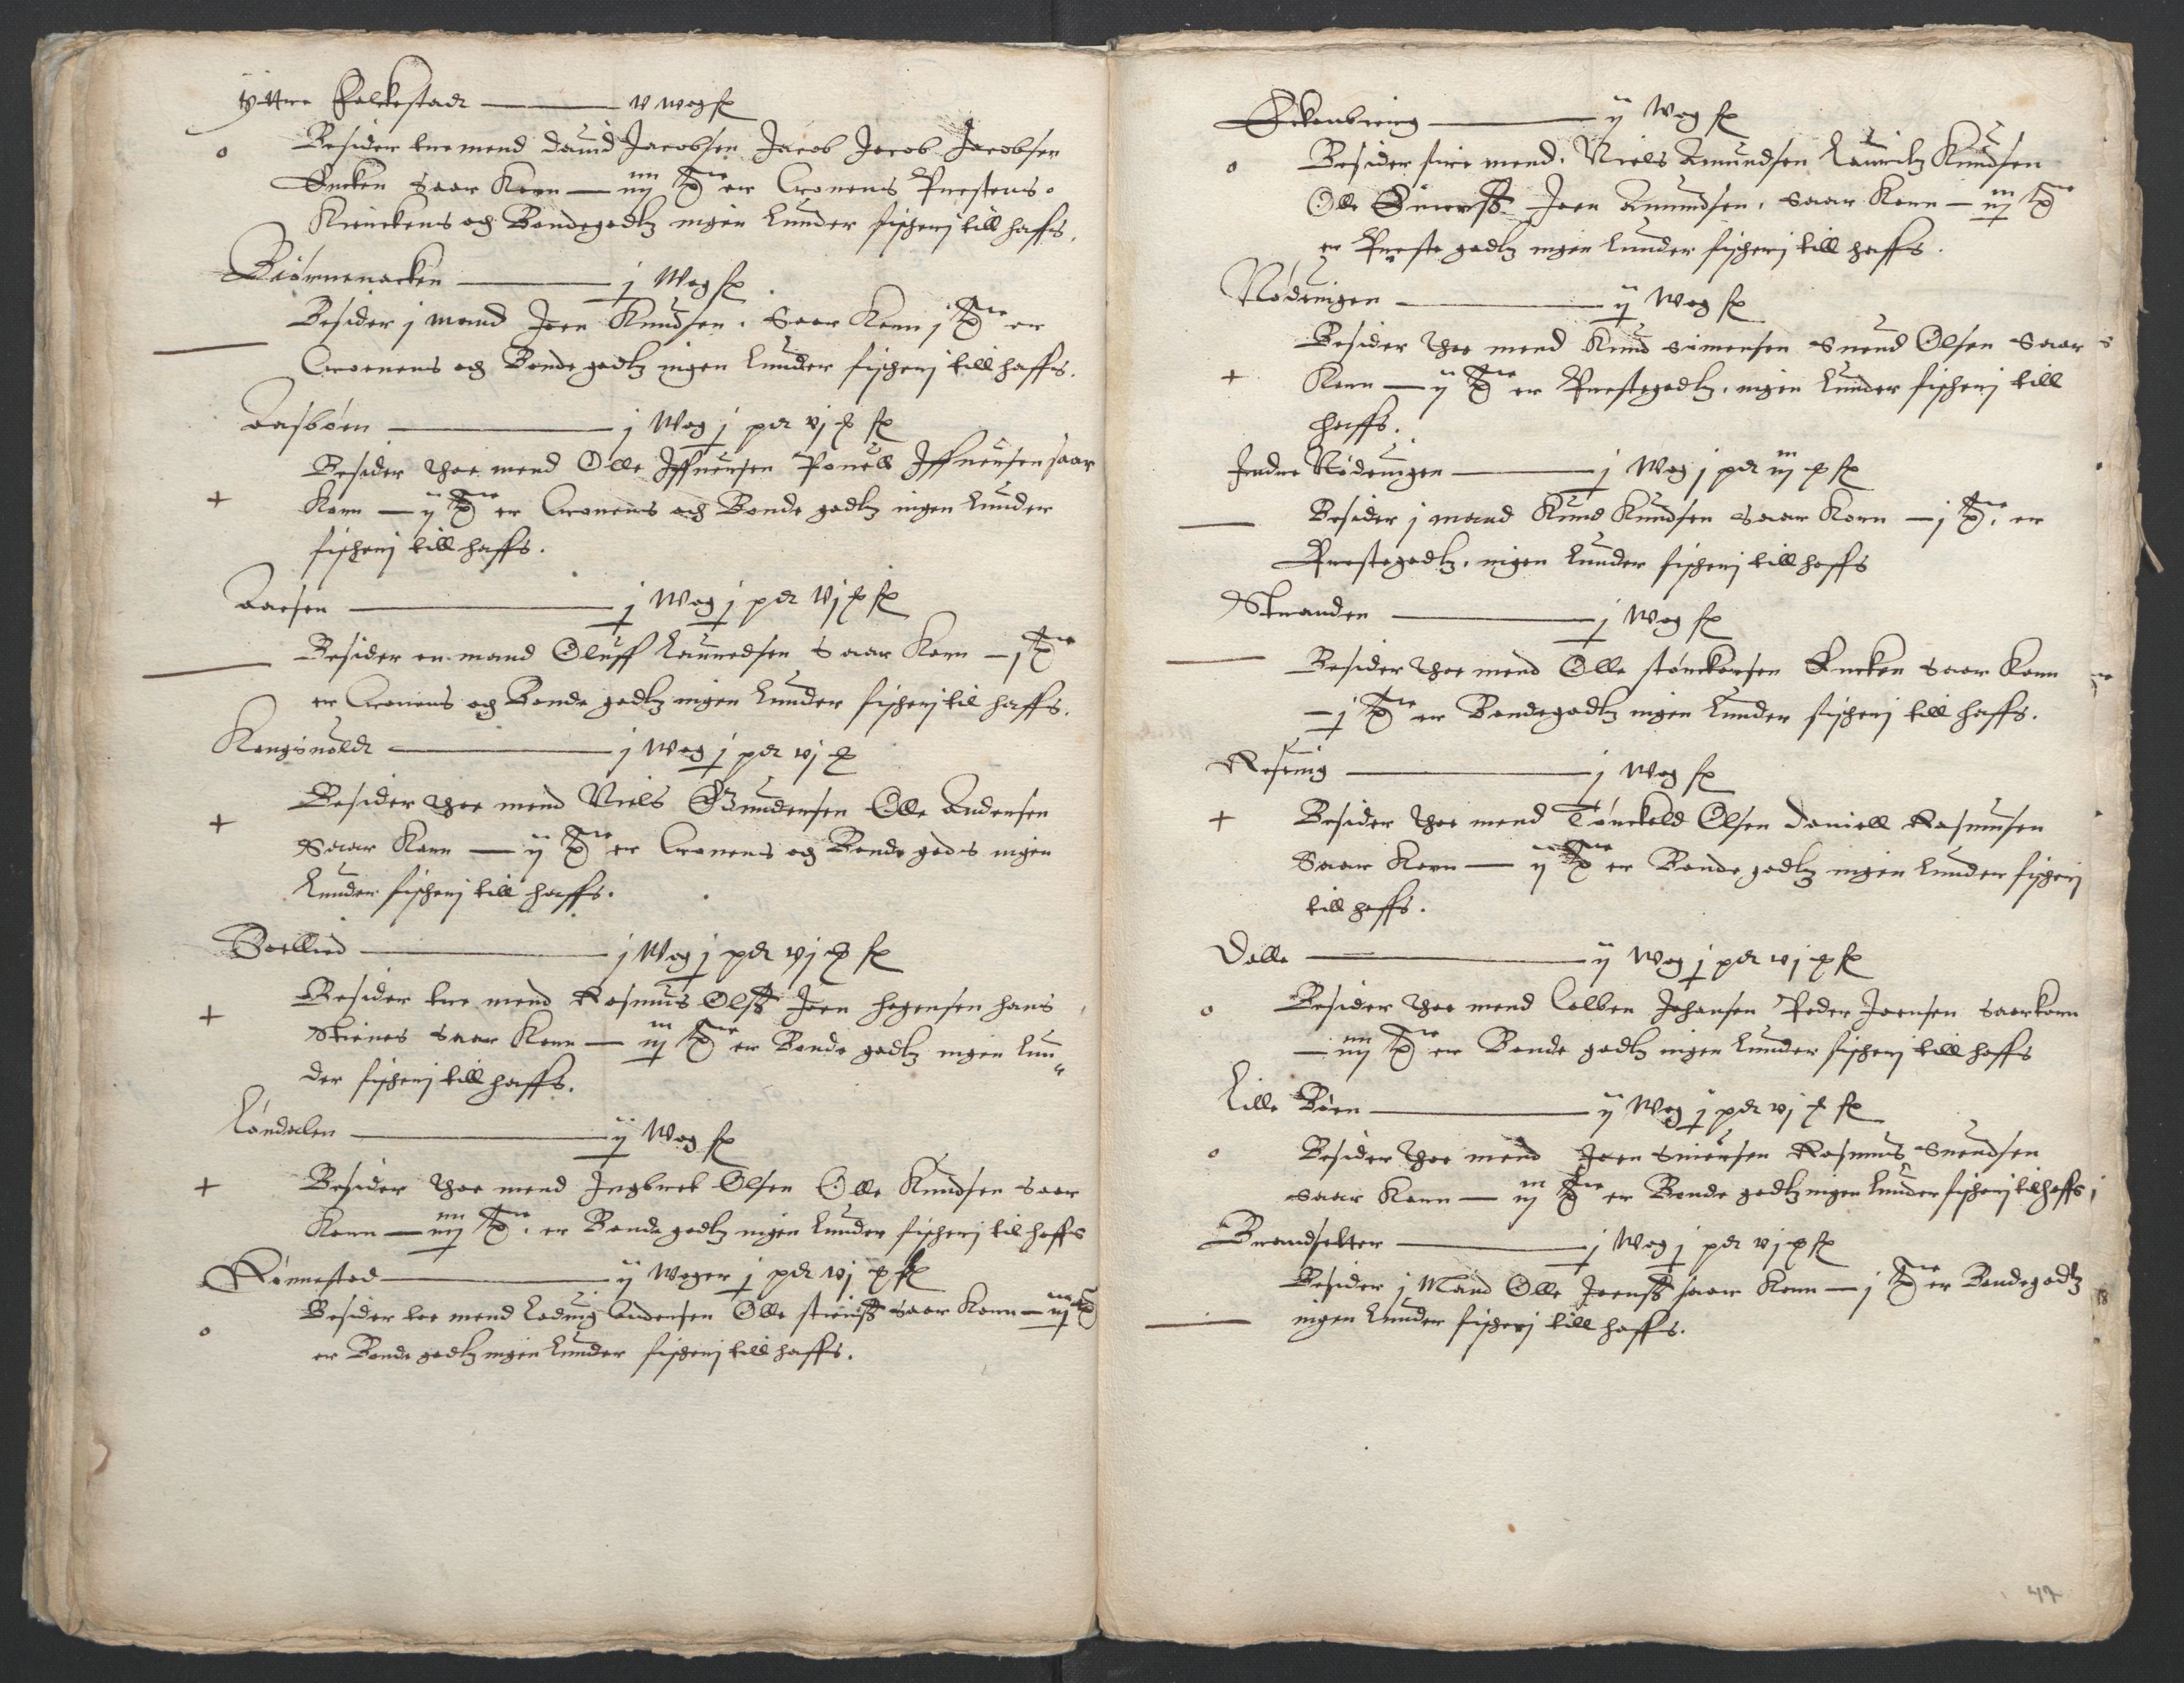 Yttre Folckestadt — v wog f
Besider tre mend Dauid Jacobsen Jacob Jacob Jacobsen
Encken saar Korn — iiij tr er Cronens Prestens
Kirckens og Bondegodtz ingen Lunder fischerj till haffs.
Biørnenacken — j Wog f
Besider j mand Joen Knudsen. Saar Korn j tr er
Cronens og Bonde godtz ingen lunder fischerj till haffs.
Aasbøen — j Wog j pd vj f
Besider thoe mend Olle Iffuersen Pouell Iffuersen saar
Korn — ij tr er Cronens och Bonde godtz ingen Lunder
fischerj till haffs.
Aaesen — j Wog j pd vj f
Besider en mand Oluff Lauredsen Saar Korn — j tr
er Cronens og Bonde godtz ingen Lunder fischerj til haffs.
Kongsuoldt — j Wog j pd vj
Besider thoe mend Niels Gundersen Olle Andersen
Saar Korn — ij tr er Cronens og Bonde gods ingen
Lunder fischerj till haffs.
Boellied — j Wog j pd vj f
Besider tre mend Rasmus Olß Joen Hogensen Hans
Stienes Saar Korn — iij tr er Bonde godtz ingen Lun
der fischerj till haffs.
Løndalen — ij Wog f
Besider thoe mend Ingbret Olsen Olle Knudsen Saar
Korn — iiij tr. er Bonde godtz ingen Lunder fischerj til haffs
Rønnestad — ij Woger j pd vj f
Besider toe mend Loduig Andersen Olle stienß saar Korn — iiij tr
er Bonde godtz ingen Lunder fischerj till haffs.
— ij Wog f
Besider fire mend. Niels Amundsen Lauritz Knudsen
Olle Joen Amundsen. saar Korn — iij tr
er Preste godtz ingen Lunder fischerj till haffs.
Nødningen — ij Wog f
Besider thoe mend Knud Simensen Suend Olsen Saar
Korn — ij tr er Prestegodtz. ingen Lunder fischerj till
haffs.
Indre Nødningen — j Wog j pd iij f
Besider j mand Knud Knudsen Saar Korn — j tr. er
Prestegodtz. ingen Lunder fischerj till haffs
Stranden — j Wog f
Besider thoe mend Olle størckersen Encken Saar Korn
— j tr er Bondegodtz ingen Lunder fischerj till haffs.
— j Wog f
Besider thoe mend Tørckeld Olsen Daniell Rasmusen
Saar Korn — ij tr er Bonde godtz ingen Lunder fischerj
till haffs.
Dalle — ij Wog j pd vj f
Besider thoe mend Colben Johansen Peder Joensen saarkorn
— iiij tr er Bonde godtz ingen Lunder fischerj till haffs
Lille Bøen — ij Wog j pd vj f
Besider thoe mend Joen Siuersen Rasmus Suendsen
saar Korn — iij tr er Bonde godtz ingen Lunder fischerj till haffs
Brandsetter — j Wog j pd vj f
Besider j Mand Olle Joenß saar Korn — j tr er Bondegodtz
ingen Lunder fischerj till haffs.
47